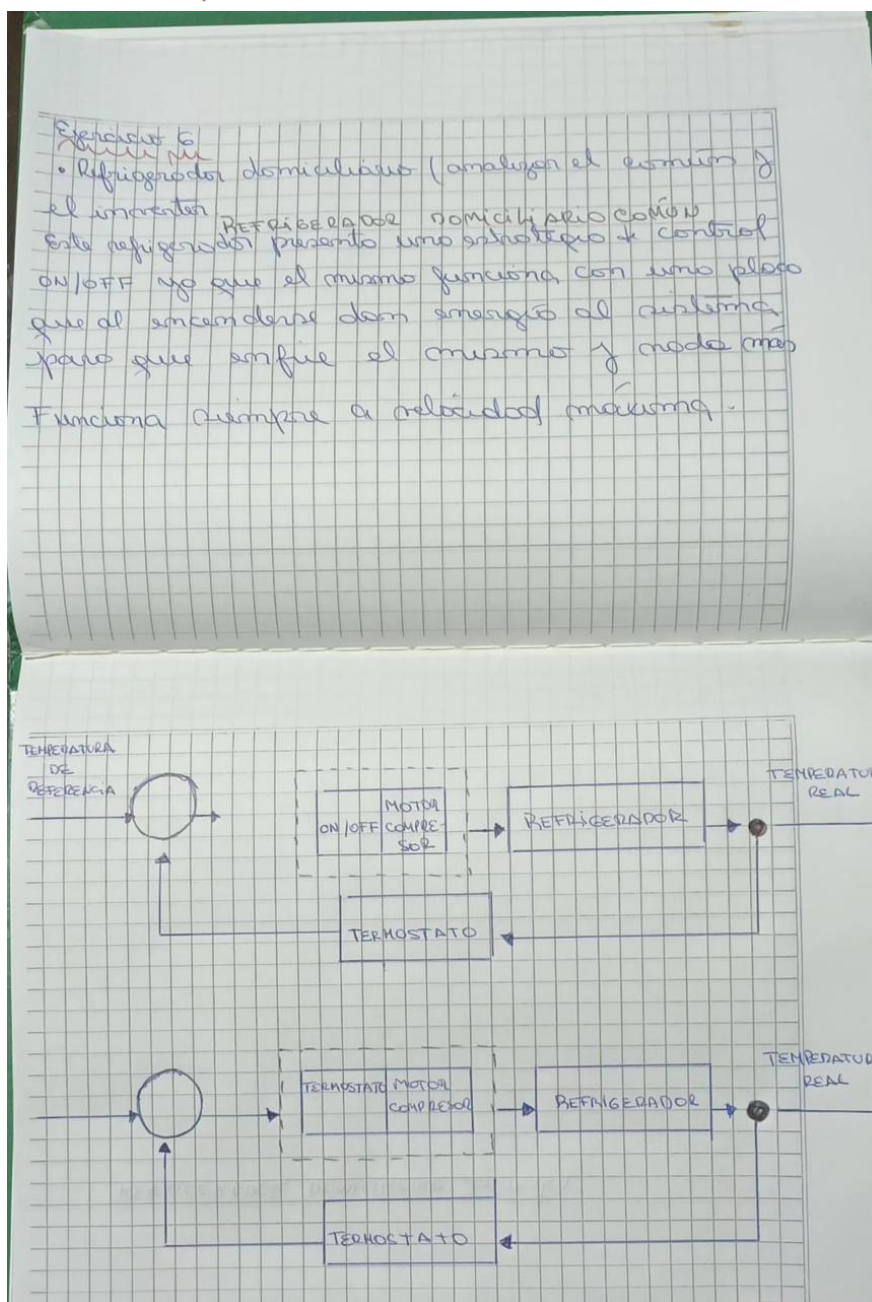 Ejercicio 6
• Refrigerador domiciliario (analizar el común y
el inverter
REFRIGERADOR DOMICILIARIO COMÚN
Este refrigerador presenta una estrategia de control
ON/OFF ya que el mismo funciona con una placa
que al encenderse dan energía al sistema
para que enfíe el mismo y nada más
Funciona siempre a velocidad máxima.
TEMPERATURA
DE
REFERENCIA
ON/OFF
MOTOR
COMPRE-
SOR
REFRIGERADOR
TEMPERATU
REAL
TERMOSTATO
TERMOSTATO
MOTOR
COMPRESOR
REFRIGERADOR
TEMPERATU
REAL
TERMOSTATO